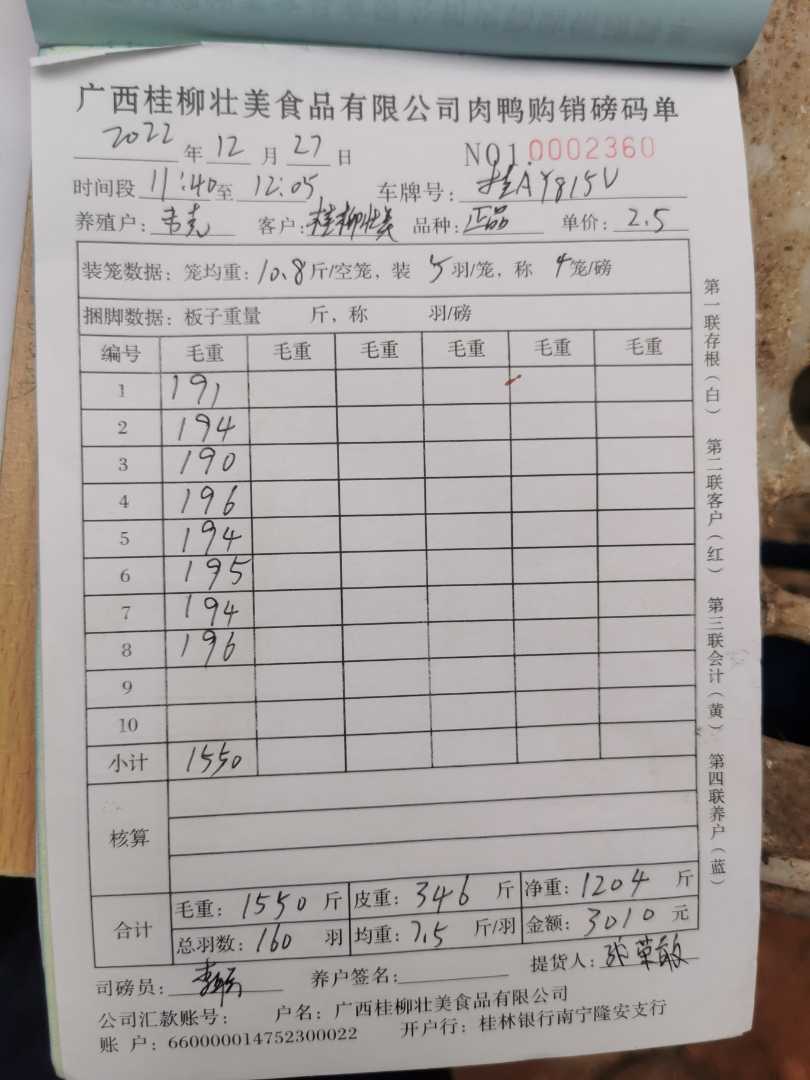 广西桂柳壮美食品有限公司肉鸭购销磅码单
2022年12月27日 NO1.0002360
时间段11:40至12:05 车牌号:桂AY815V
养殖户:韦克 客户:桂柳壮美 品种:正品 单价:2.5
装笼数据:笼均重:10.8斤/空笼,装5羽/笼,称4笼/磅
捆脚数据:板子重量 斤,称 羽/磅
编号 毛重 毛重 毛重 毛重 毛重 毛重
1 191
2 194
3 190
4 196
5 194
6 195
7 194
8 196
9
10
小计 1550
核算
合计 毛重:1550斤 皮重:346斤 净重:1204斤
总羽数:160羽 均重:7.5斤/羽 金额:3010元
司磅员: 养户签名: 提货人:
公司汇款账号: 户名:广西桂柳壮美食品有限公司
账户:660000014752300022 开户行:桂林银行南宁隆安支行
第一联存根(白) 第二联客户(红) 第三联会计(黄) 第四联养户(蓝)